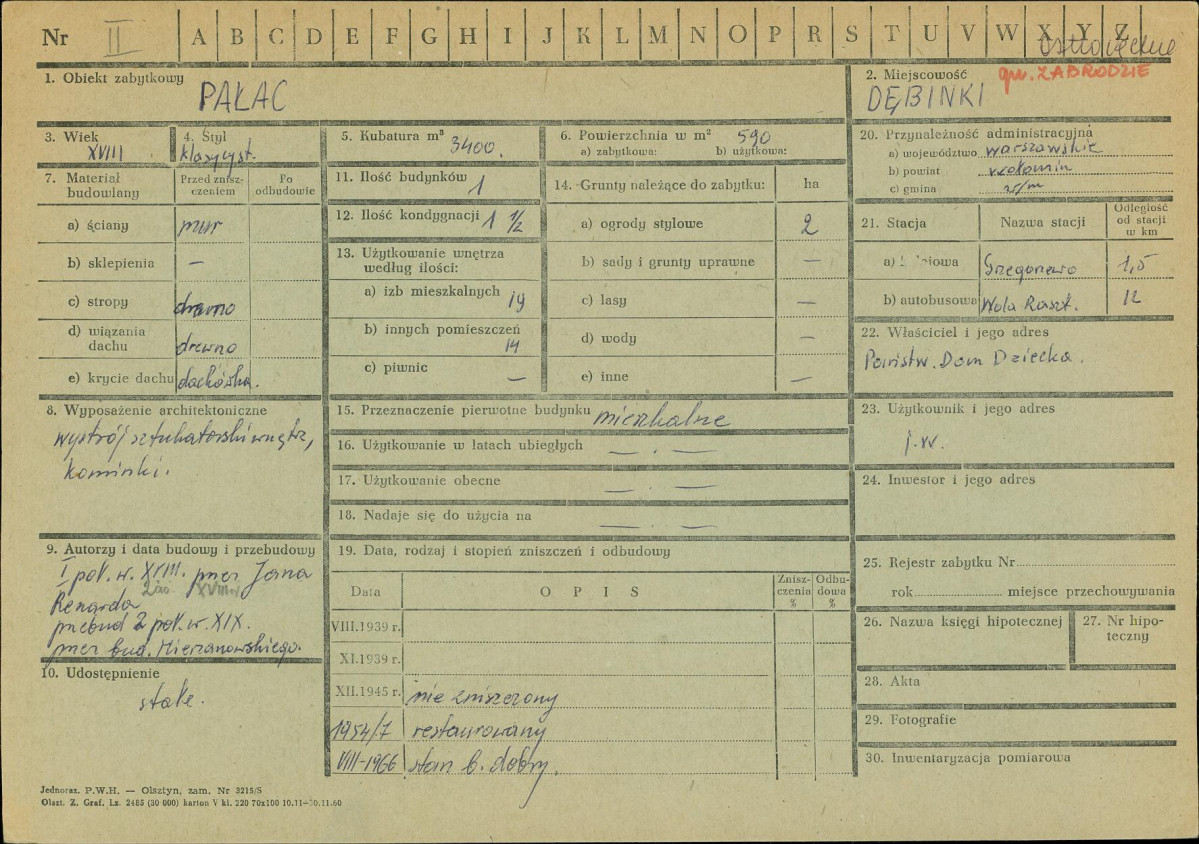 Nr II A B C D E F G H I J K L M N O P R S T U V W X Y Z
ostrołęckie
gm. ZABRODZIE
1. Obiekt zabytkowy
PAŁAC
2. Miejscowość
DĘBINKI
3. Wiek
XVIII
4. Styl
klasycyst.
5. Kubatura m³
3400.
6. Powierzchnia w m² 590
a) zabytkowa: b) użytkowa:
7. Materiał budowlany
Przed zniszczeniem
Po odbudowie
a) ściany mur
b) sklepienia —
c) stropy drewno
d) wiązania dachu drewno
e) krycie dachu dachówka.
8. Wyposażenie architektoniczne
wystrój sztukatorski wnętrz,
kominki.
9. Autorzy i data budowy i przebudowy
I poł. w. XVIII. przez Jana
XVIII w
Renarda
przebud 2 poł. w. XIX.
przez bud. Mierzanowskiego.
10. Udostępnienie
stałe.
11. Ilość budynków 1
12. Ilość kondygnacji 1 1/2
13. Użytkowanie wnętrza
według ilości:
a) izb mieszkalnych 19
b) innych pomieszczeń
14
c) piwnic —
14. Grunty należące do zabytku: ha
a) ogrody stylowe 2
b) sady i grunty uprawne —
c) lasy —
d) wody —
e) inne —
15. Przeznaczenie pierwotne budynku mieszkalne
16. Użytkowanie w latach ubiegłych — . —
17. Użytkowanie obecne — . —
18. Nadaje się do użycia na — . —
19. Data, rodzaj i stopień zniszczeń i odbudowy
Data OPIS Zniszczenia % Odbudowa %
VIII.1939 r.
XI.1939 r.
XII.1945 r. nie zniszczony
1954/7 restaurowany
VIII-1966 stan b. dobry.
20. Przynależność administracyjna
a) województwo warszawskie
b) powiat wołomin
c) gmina w/m
21. Stacja Nazwa stacji Odległość od stacji w km
a) kolejowa 1,5
b) autobusowa Wola Raszt. 12
22. Właściciel i jego adres
Państw. Dom Dziecka.
23. Użytkownik i jego adres
j.w.
24. Inwestor i jego adres
25. Rejestr zabytku Nr
rok miejsce przechowywania
26. Nazwa księgi hipotecznej
27. Nr hipoteczny
28. Akta
29. Fotografie
30. Inwentaryzacja pomiarowa
Jednoraz. P.W.H. — Olsztyn, zam. Nr 3215/S
Olszt. Z. Graf. Lz. 2485 (30 000) karton V kl. 220 70x100 10.11—30.11.60